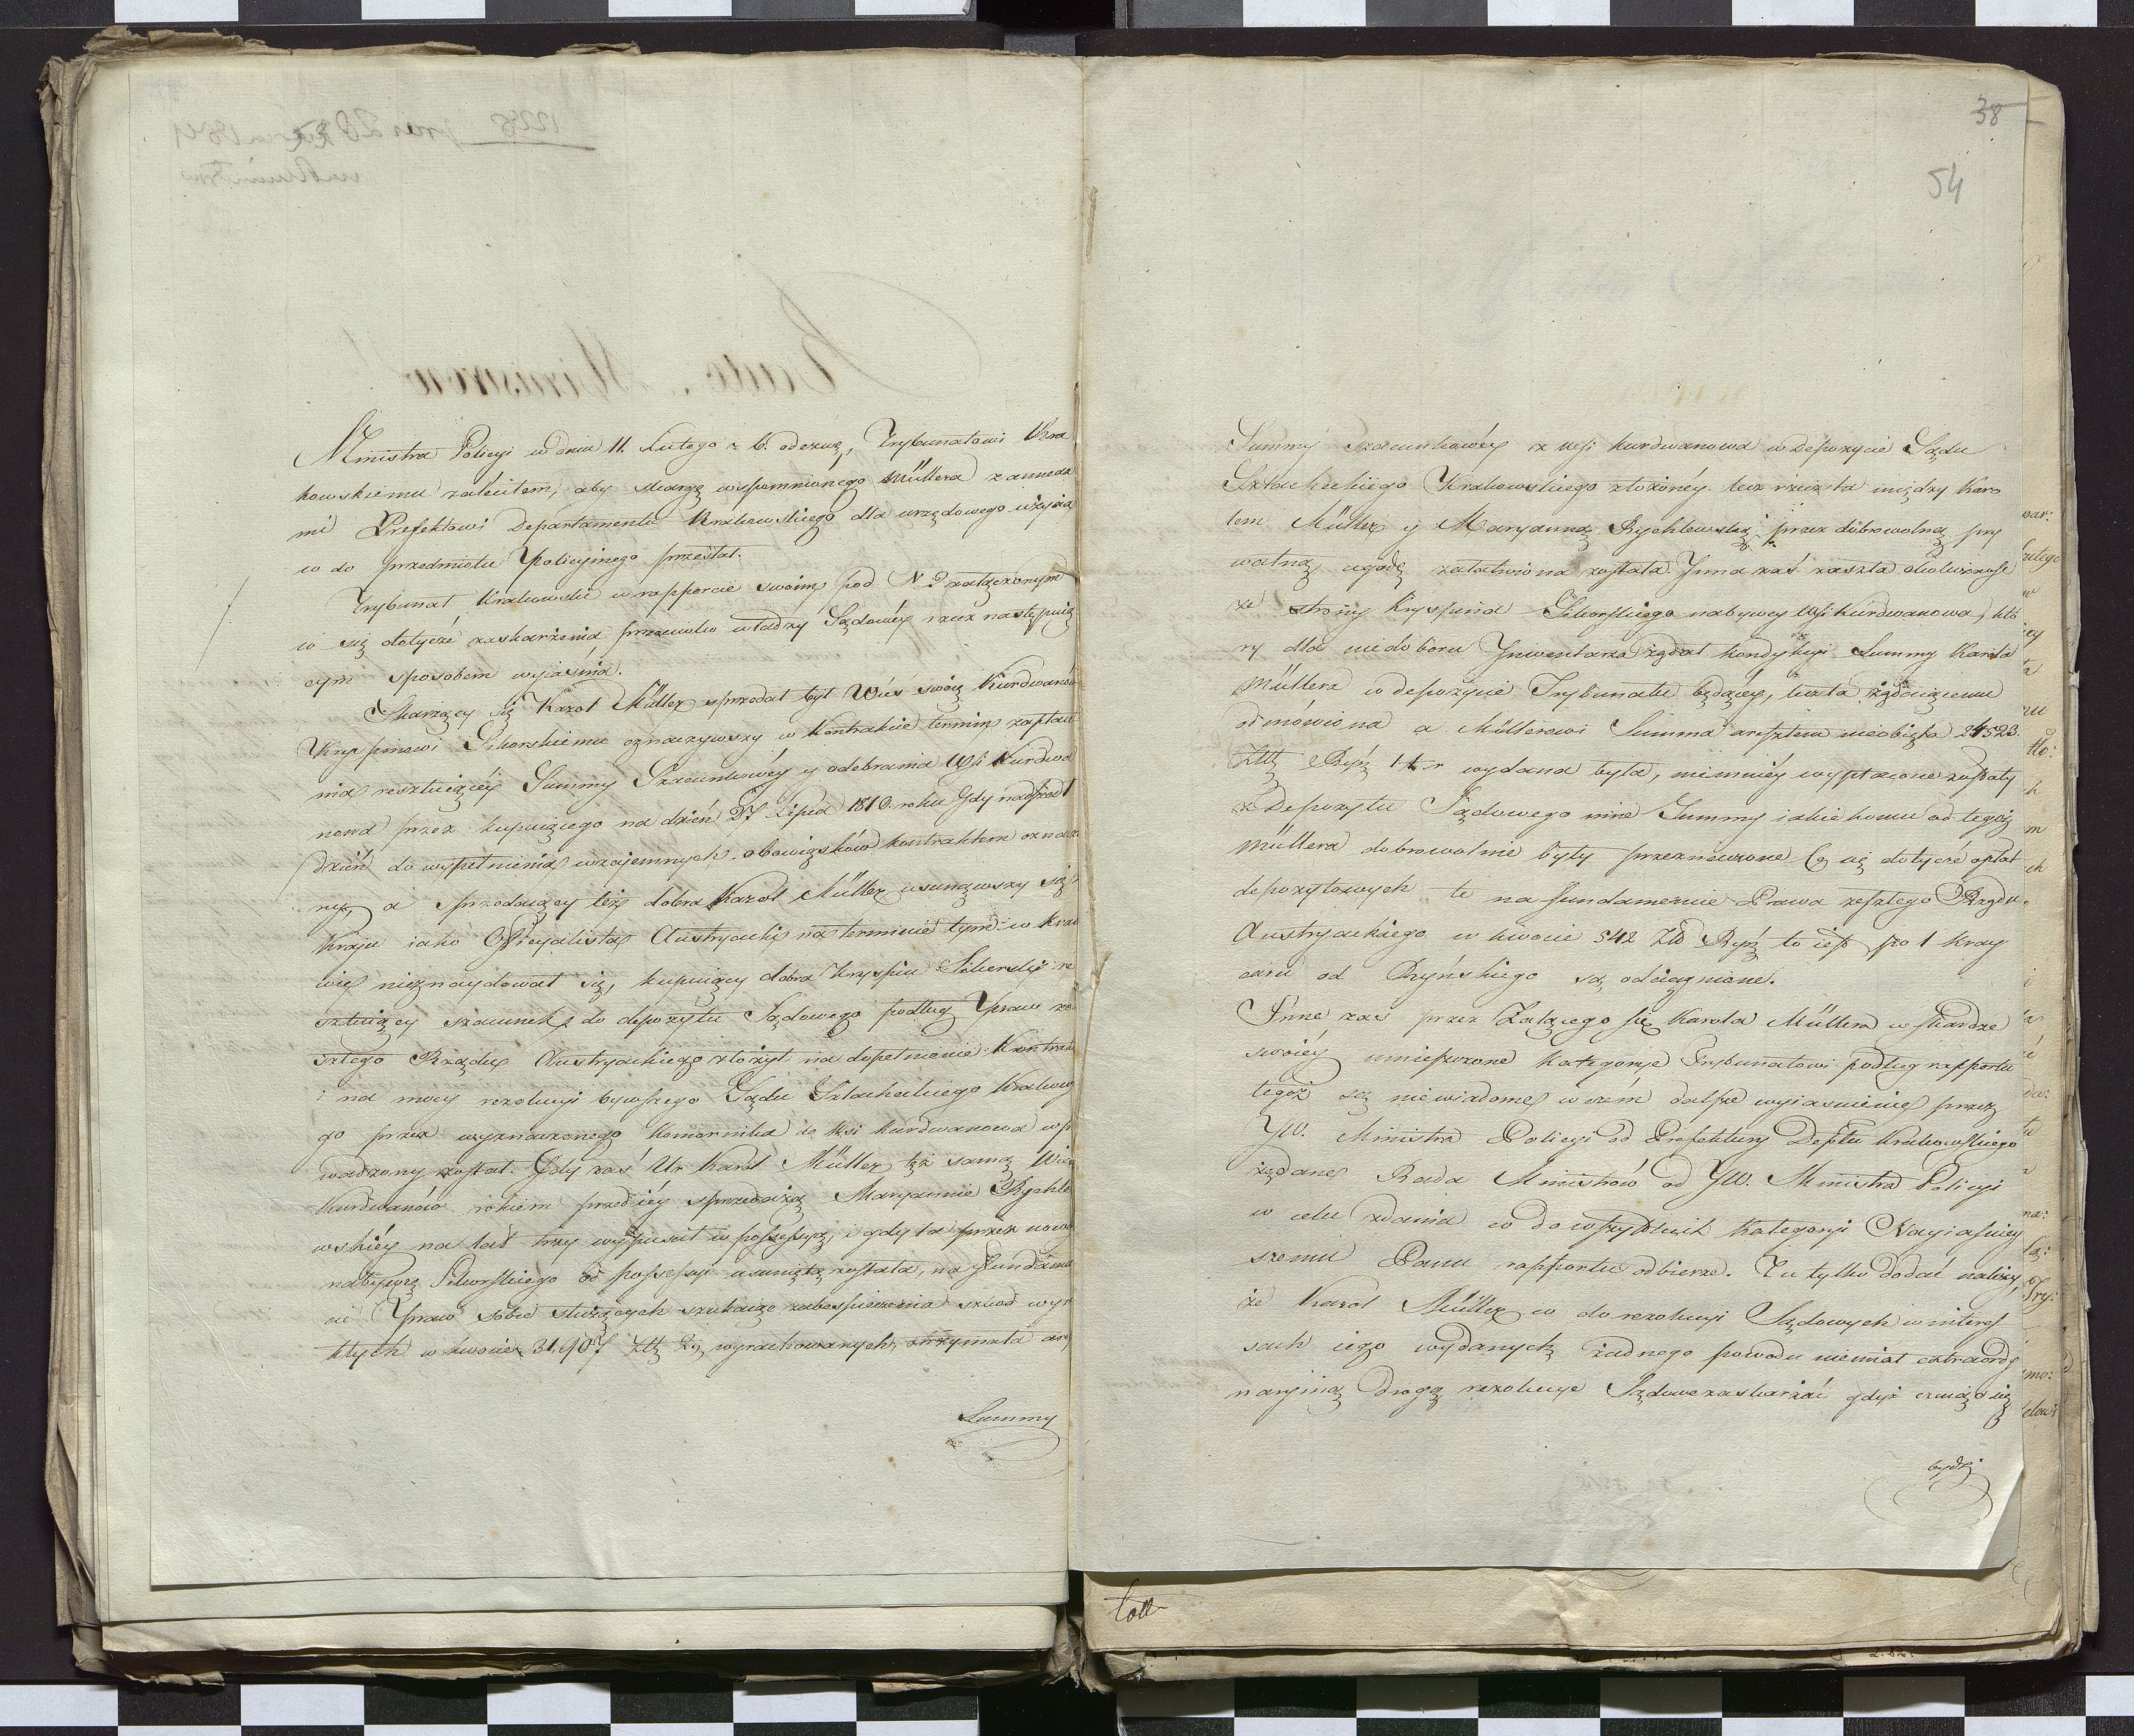 Ministra Policyi w dniu 11. Lutego r. b. odezwę, Trybunałowi Kra
kowskiemu zaleciłem, aby skargę wspomnionego Müllera z annexa
mi Prefektowi Departamentu Krakowskiego dla urzędowego użycia
co do przedmiotu Policyinego przesłał.
Trybunał Krakowski w rapporcie swoim pod Nº załączonym
co się dotycze zaskarżenia przeciwko władzy Sądowéy rzecz następuią
cym sposobem wyiaśnia.
Skarżący się Karol Müller sprzedał był Wieś swoię Kurdwanów
Kryspinowi Sikorskiemu oznaczywszy w Kontrakcie termin zapłace
nia resztuiącéy Summy Szacunkowéy y odebrania Wsi Kurdwa
nowa przez kupuiącego na dzień 27 Lipca 1810. roku Gdy nadszedł
dzień do wypełnienia wzajemnych obowiązków kontraktem oznaczo
ny, a sprzedaiący też dobra Karol Müller usunąwszy się z
Kraju iako Officyalista Austryacki na terminie tym w Krako
wie nieznaydował się, kupuiący dobra Kryspin Sikorski re
sztuiący szacunek do depozytu Sądowego podług Praw ze
szłego Rządu Austryackiego złożył na dopełnienie Kontraktu
i na mocy rezolucyi bywszego Sądu Szlacheckiego Krakowskie
go przez wyznaczonego Komornika do Wsi Kurdwanowa wpro
wadzony został. Gdy zaś Ur. Karol Müller tęż samą Wieś
Kurdwanów rokiem przed iéy sprzedażą Maryannie Rychle
wskiéy na lat trzy wypuścił w possessyą, i gdy ta przez nowo
nabywcę Sikorskiego od possessyi usunięta została, na fundamen
cie Praw sobie służących szukaiąc zabespieczenia szkod wyni
kłych w kwocie 31,907 Złł wyrachowanych, otrzymała are
Summy
38
54
Summy szacunkowéy z wsi Kurdwanowa w Depozycie Sądu
Szlacheckiego Krakowskiego złożonéy. lecz rzecz ta między Karo
lem Müller y Maryanną Rychlewską przez dobrowolną pry
watną ugodę załatwiona została Inna zaś zaszła okoliczność
ze strony Kryspina Sikorskiego nabywcy Wsi Kurdwanowa, któ
ry dla niedoboru Inwentarza żądał kondykcyi Summy Karola
Müllera w depozycie Trybunału będącey, lecz ta żądaiącemu
odmówiona a Müllerowi Summa aresztem nieobięta 24523.
Złł Ryń 1 kr wydana była, niemniéy wypłacone zostały
z Depozytu Sądowego inne Summy iakie komu od tegoż
Müllera dobrowolnie były przeznaczone Co się dotycze opłat
depozytowych te na fundamencie Prawa zeszłego Rządu
Austryackiego w kwocie 542 Zło Ryń to iest po 1 kray
carze od Ryńskiego są odciągnione.
Inne zaś przez Żalącego się Karola Müllera w skardze
swoiéy umieszczone Kategorye Trybunałowi podług rapportu
tegoż są niewiadome w czém dalsze wyiaśnienie przez
JW. Ministra Policyi od Prefektury Deptu Krakowskiego
żądane Rada Ministrów od JW. Ministra Policyi
w celu zdania co do wszystkich Kategoryi Nayiaśniey
szemu Panu rapportu odbierze. Tu tylko dodać należy,
że Karol Müller co do rezolucyi Sądowych w interes
sach iego wydanych żadnego powodu niemiał extraordy
naryiną drogą rezolucye Sądowe zaskarżać gdyż czuiąc się
bydź